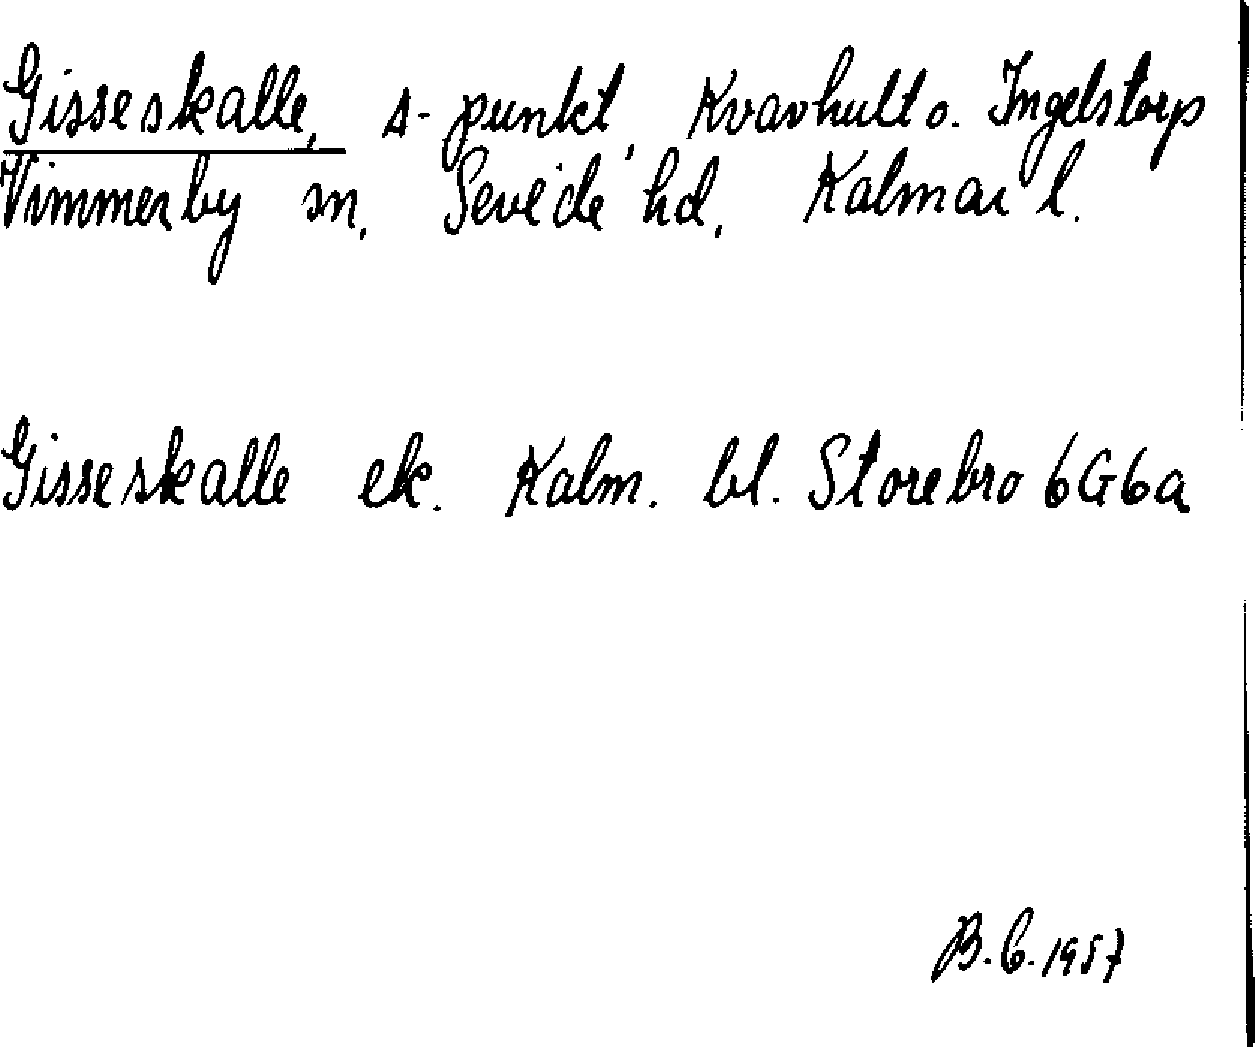 Gisseskalle, s-punkt, Kvarnhult o. Ingelstorp
Vimmerby sn, Sevede hd, Kalmar l.
Gisseskalle ek. Kalm. bl. Storebro 6G6a
B.C. 1957